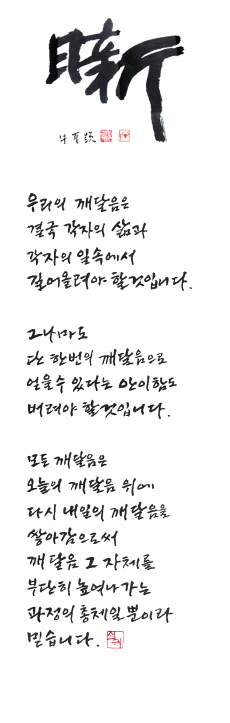 日新
우리의 깨달음은
결국 각자의 삶과
각자의 일속에서
길어올려야 할것입니다.
그나마도
단 한번의 깨달음으로
얻을수 있다는 안이함도
버려야 할것입니다.
모든 깨달음은
오늘의 깨달음 위에
다시 내일의 깨달음을
쌓아감으로써
깨달음 그 자체를
부단히 높여나가는
과정의 총체일 뿐이라
믿습니다.